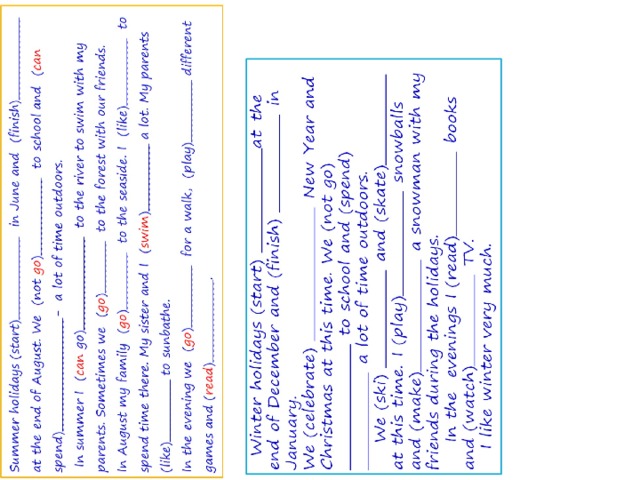 Summer holidays (start)__________ in June and (finish)__________
at the end of August. We (not go)__________ to school and (can
spend)__________- a lot of time outdoors.
In summer I (can go)__________ to the river to swim with my
parents. Sometimes we (go)______ to the forest with our friends.
In August my family (go)__________ to the seaside. I (like)________ to
spend time there. My sister and I (swim)__________ a lot. My parents
(like)________ to sunbathe.
In the evening we (go)__________ for a walk, (play)__________ different
games and (read)__________.
Winter holidays (start) ________at the
end of December and (finish) __________ in
January.
We (celebrate) __________ New Year and
Christmas at this time. We (not go)
__________ to school and (spend)
__________ a lot of time outdoors.
We (ski) __________ and (skate)__________
at this time. I (play)__________ snowballs
and (make)__________ a snowman with my
friends during the holidays.
In the evenings I (read)__________ books
and (watch)__________ TV.
I like winter very much.